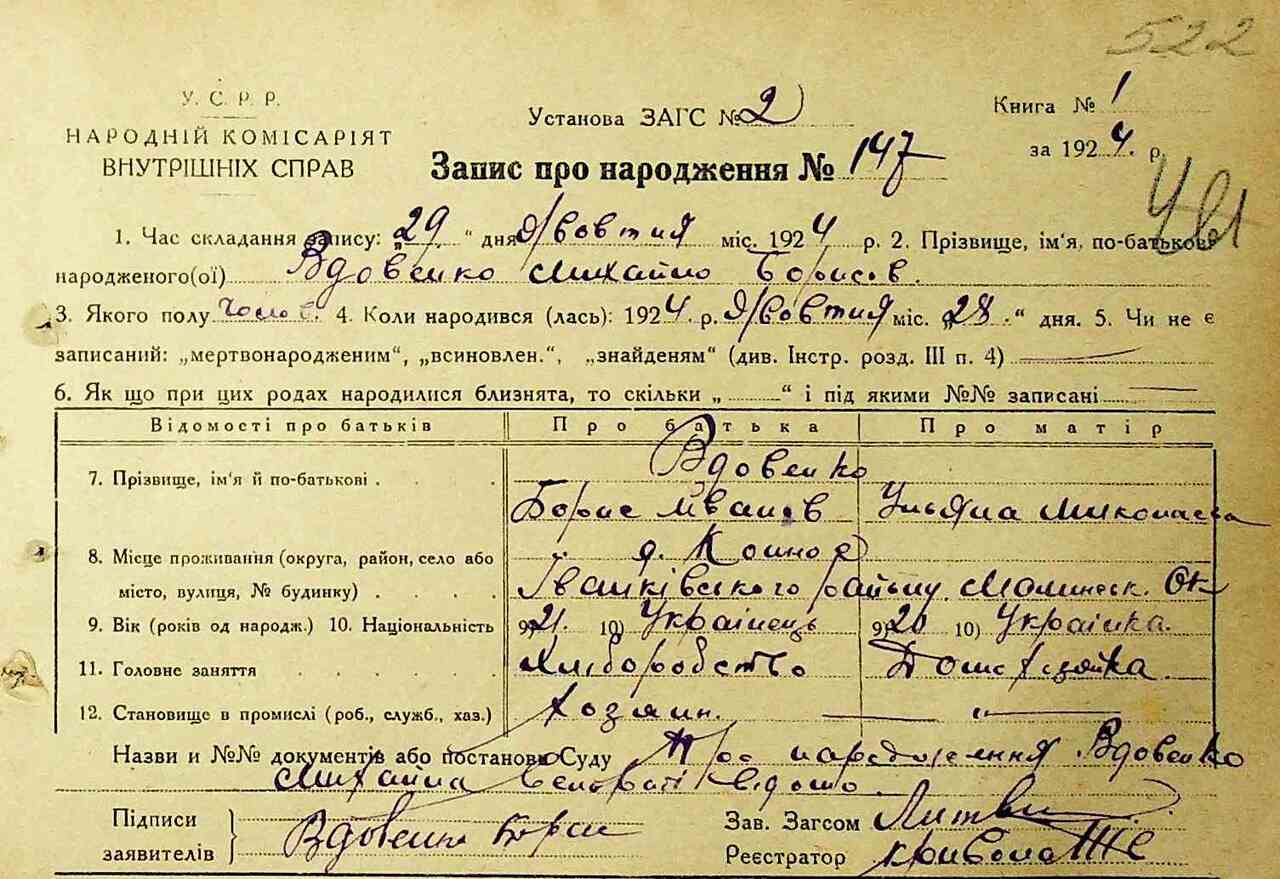 522
У. С. Р. Р.
НАРОДНІЙ КОМІСАРІЯТ
ВНУТРІШНІХ СПРАВ
Установа ЗАГС № 2
Книга № 1
за 1924. р.
Запис про народження № 147
1. Час складання запису: „29“ дня Жовтня міс. 1924 р. 2. Прізвище, ім'я, по-батькові
народженого(ої) Вдовенко Михайло Борисов.
3. Якого полу чолов. 4. Коли народився (лась): 1924. р. Жовтня міс. „28.“ дня. 5. Чи не є
записаний: „мертвонародженим“, „всиновлен.“, „знайденям“ (див. Інстр. розд. III п. 4)
6. Як що при цих родах народилися близнята, то скільки „ “ і під якими №№ записані
Відомості про батьків Про батька Про матір
7. Прізвище, ім'я й по-батькові . Вдовенко
Борис Иванов Ульяна Миколаевна
8. Місце проживання (округа, район, село або
місто, вулиця, № будинку) Іванківского району. Малинск. Ок
9. Вік (років од народж.) 10. Національність 9) 21. 10) Українець 9) 20 10) Українка.
11. Головне заняття Хліборобство Домохазяйка.
12. Становище в промислі (роб., служб., хаз.) Хозяин. — „ —
Назви и №№ документів або постанови Суду Про народження Вдовенко
Михайла відомо
Підписи
заявителів } Вдовенко Борис
Зав. Загсом
Реєстратор